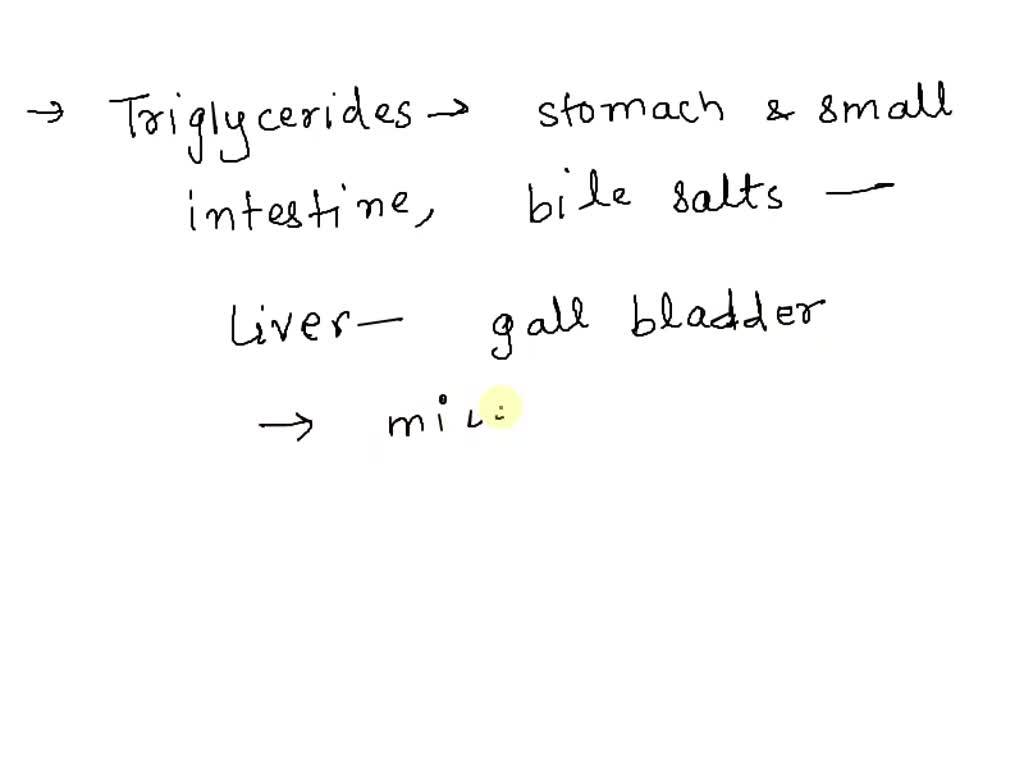 → Triglycerides → stomach & small
intestine, bile salts —
Liver — gall bladder
→